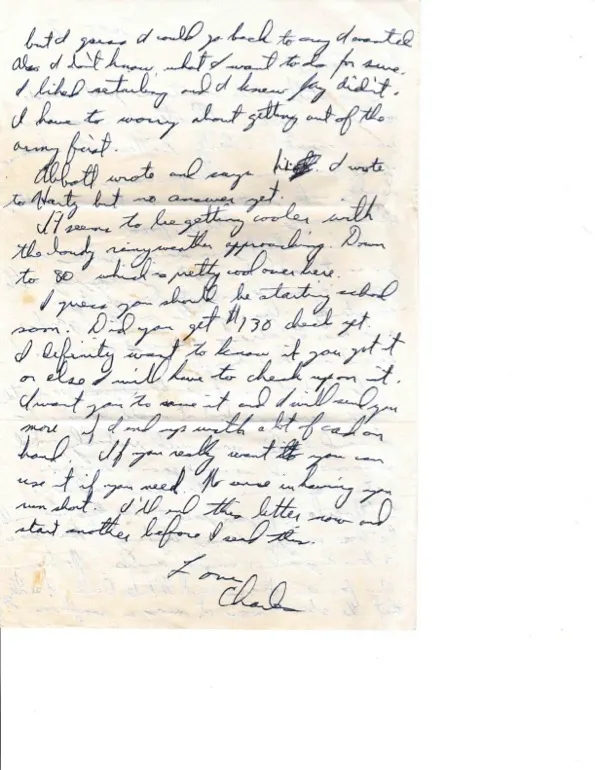 but I guess I could go back to any I wanted
Also I don't know, what I want to do for sure.
I liked retailing and I knew Jay didn't.
I have to worry about getting out of the
army first.
Abbott wrote and says I wrote
to Hartz but no answer yet.
It seems to be getting cooler with
the cloudy rainy weather approaching. Down
to 80 which is pretty cool over here.
I guess you should be starting school
soon. Did you get $130 check yet.
I definity want to know if you got it
or else I will have to check upon it.
I want you to save it and I will send you
more if I end up with a lot of cash on
hand. If you really want to you can
use it if you need. No sense in having you
run short. I'll end this letter now and
start another before I send this.
Love
Charles